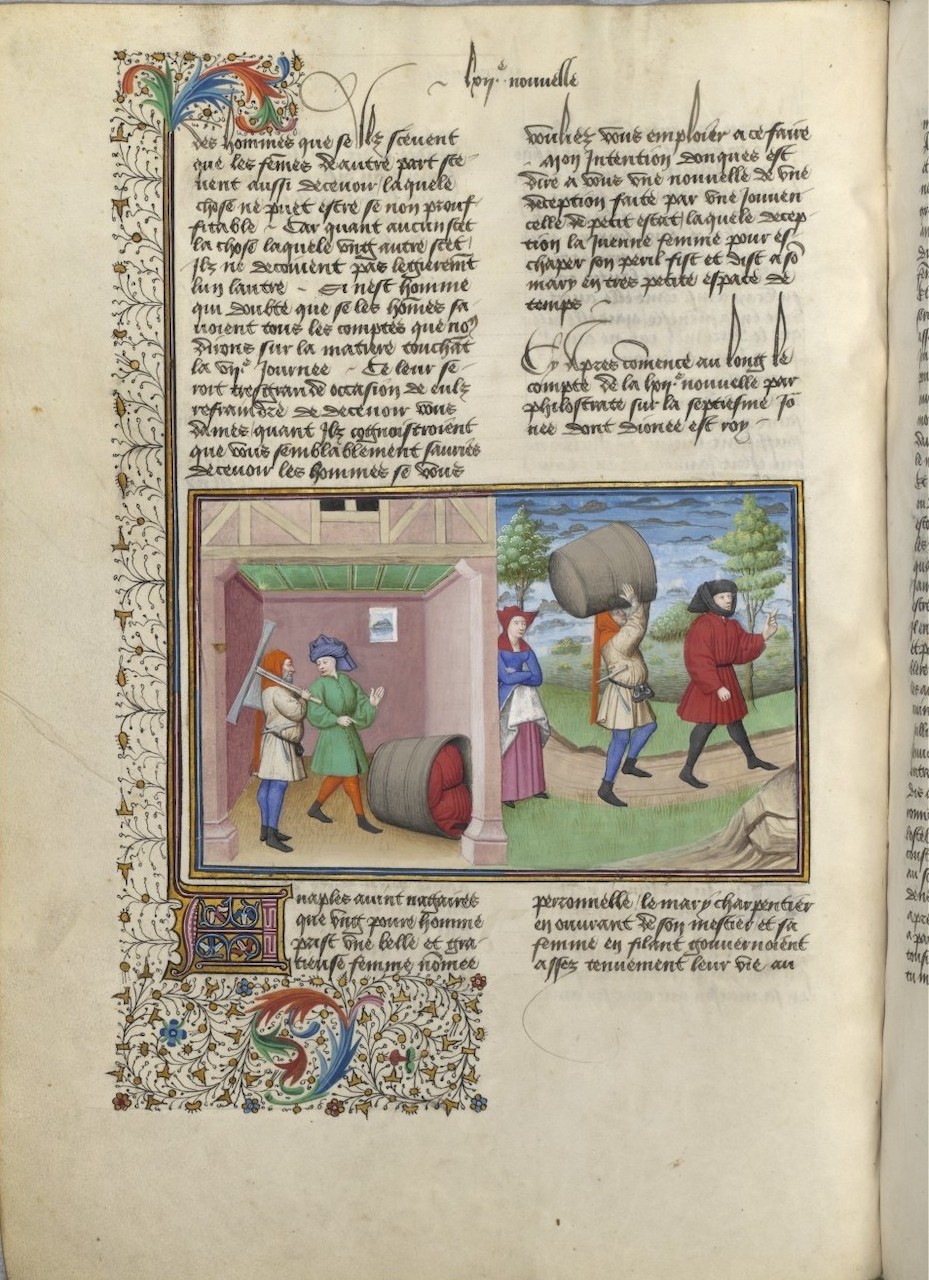 lxii.e nouvelle
des hommes que se Ilz scevent
que les fem̄es de autre part sce-
uent aussi decevoir / laquele
chose ne puet estre se non prouf-
fitable - Car quant aucun scet
la chose laquele vng autre scet /
Ilz ne decoiuent pas legierem̄t
lun lautre - Si nest homme
qui doubte que se les hōmes sa-
uoient tous les comptes que noꝰ
dirons sur la matiere touchāt
la vii.e Journee - Ce leur se-
roit tresgrande occasion de eulz
refraindre de decevoir vous
dames / quant Ilz cognoistroient
que vous semblablement sauries
decevoir les hommes se vous
vouliez vous emploier a ce faire
- Mon Intention donques est
dire a vous vne nouvelle de vne
deception faite par vne Jouuen
celle de petit estat / laquele decep-
tion la Juenne femme pour es-
chaper son peril fist et dist a sō
mary en tres petite espace de
temps -
Cy Apres cōmence au long le
compte de la lxii.e nouvelle par
philostrate sur la septiesme Jo
nee dont dionee est roy -
A naples avint nagaires
que vng poure homme
prist vne belle et gra-
tieuse femme nōmee
peronnelle / le mary charpentier
en ouvrant de son mestier et sa
femme en filant gouvernoient
assez tenuement leur vie au